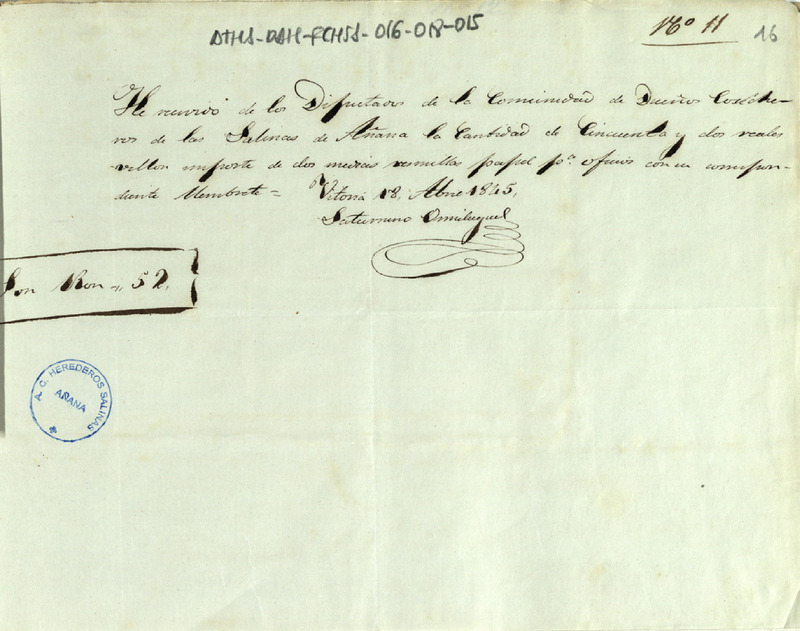 ATHA-DAH-FCHSS-016-018-015
Nº 11
16
He recivido de los Diputados de la Comunidad de Dueños Coseche-
ros de las Salinas de Añana la Cantidad de Cincuenta y dos reales
vellon importe de dos medias resmillas papel pª. oficios con su correspon-
diente Membrete =
Vitoria 18, Abril 1845,
Saturnino Ormilugue
Son Ron 52,
A. C. HEREDEROS SALINAS
AÑANA